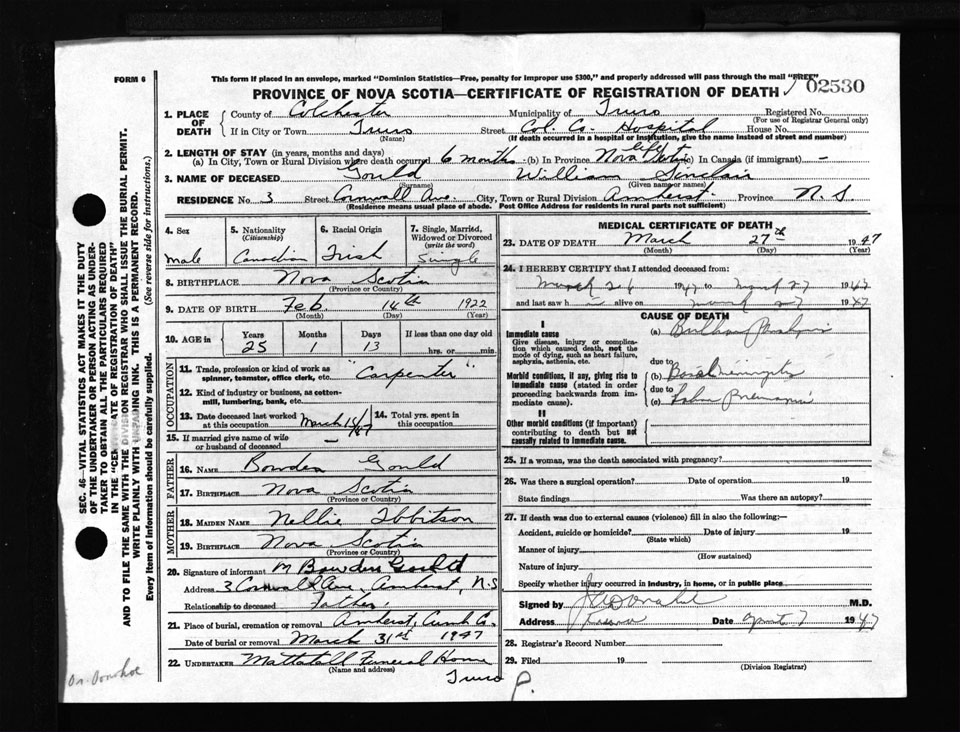 FORM 6
This form if placed in an envelope, marked "Dominion Statistics—Free, penalty for improper use $300," and properly addressed will pass through the mail "FREE"
PROVINCE OF NOVA SCOTIA—CERTIFICATE OF REGISTRATION OF DEATH 02530
1. PLACE OF DEATH County of Colchester Municipality of Truro Registered No.
(For use of Registrar General only)
If in City or Town Truro Street Col Co. Hospital House No.
(Name) (If death occurred in a hospital or institution, give the name instead of street and number)
2. LENGTH OF STAY (in years, months and days)
(a) In City, Town or Rural Division where death occurred 6 months (b) In Province Nova Scotia life (c) In Canada (if immigrant) -
3. NAME OF DECEASED Gould William Sinclair
(Surname) (Given name or names)
RESIDENCE No. 3 Street Cornwall Ave. City, Town or Rural Division Amherst Province N.S.
(Residence means usual place of abode. Post Office Address for residents in rural parts not sufficient)
4. Sex
male
5. Nationality
(Citizenship)
Canadian
6. Racial Origin
Irish
7. Single, Married, Widowed or Divorced
(write the word)
Single
8. BIRTHPLACE Nova Scotia
(Province or Country)
9. DATE OF BIRTH Feb. 14th 1922
(Month) (Day) (Year)
10. AGE in Years Months Days If less than one day old
25 1 13 hrs. or min.
OCCUPATION
11. Trade, profession or kind of work as spinner, teamster, office clerk, etc. "Carpenter"
12. Kind of industry or business, as cotton-mill, lumbering, bank, etc.
13. Date deceased last worked at this occupation March 14/47
14. Total yrs. spent in this occupation
15. If married give name of wife or husband of deceased -
FATHER
16. NAME Bowden Gould
17. BIRTHPLACE Nova Scotia
(Province or Country)
MOTHER
18. MAIDEN NAME Nellie Ibbitson
19. BIRTHPLACE Nova Scotia
(Province or Country)
20. Signature of informant M Bowden Gould
Address 3 Cornwall Ave, Amherst, N.S
Relationship to deceased Father
21. Place of burial, cremation or removal Amherst, Cumb Co.
Date of burial or removal March 31st 1947
22. UNDERTAKER Mattatall Funeral Home
(Name and address)
Truro
MEDICAL CERTIFICATE OF DEATH
23. DATE OF DEATH March 27th 1947
(Month) (Day) (Year)
24. I HEREBY CERTIFY that I attended deceased from:
March 26 1947 to March 27 1947
and last saw h alive on March 27 1947
CAUSE OF DEATH
I
Immediate cause
Give disease, injury or complication which caused death, not the mode of dying, such as heart failure, asphyxia, asthenia, etc.
(a)
due to
Morbid conditions, if any, giving rise to immediate cause (stated in order proceeding backwards from immediate cause).
(b)
due to
(c)
II
Other morbid conditions (if important) contributing to death but not causally related to immediate cause.
25. If a woman, was the death associated with pregnancy?
26. Was there a surgical operation? Date of operation 19
State findings Was there an autopsy?
27. If death was due to external causes (violence) fill in also the following:—
Accident, suicide or homicide? Date of injury 19
(State which)
Manner of injury
(How sustained)
Nature of injury
Specify whether injury occurred in industry, in home, or in public place
Signed by M.D.
Address Truro Date April 7 1947
28. Registrar's Record Number
29. Filed 19
(Division Registrar)
SEC. 46—VITAL STATISTICS ACT MAKES IT THE DUTY
OF THE UNDERTAKER OR PERSON ACTING AS UNDER-
TAKER TO OBTAIN ALL THE PARTICULARS REQUIRED
IN THE "CERTIFICATE OF REGISTRATION OF DEATH"
AND TO FILE THE SAME WITH THE DIVISION REGISTRAR WHO SHALL ISSUE THE BURIAL PERMIT.
WRITE PLAINLY WITH UNFADING INK. THIS IS A PERMANENT RECORD.
Every item of information should be carefully supplied. (See reverse side for instructions.)
Dr. Donohoe
P.